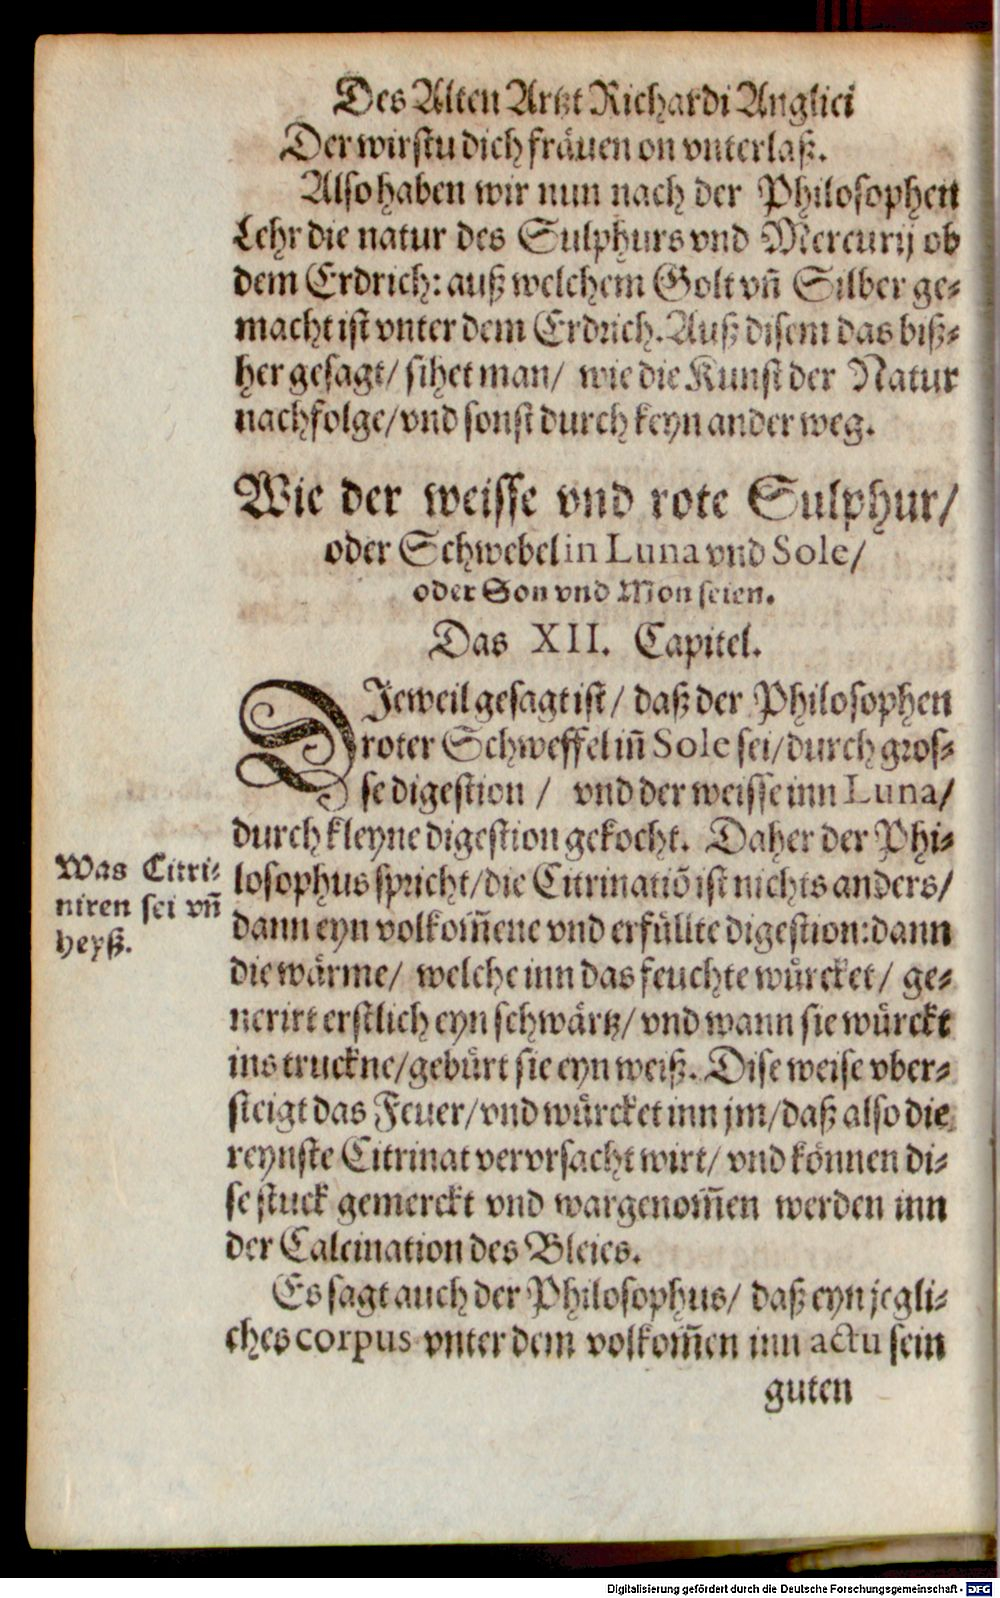 Des Alten Artzt Richardi Anglici
Der wirstu dich fräuen on vnterlaß.
Also haben wir nun nach der Philosophen
Lehr die natur des Sulphurs vnd Mercurij ob
dem Erdrich: auß welchem Golt vñ Silber ge-
macht ist vnter dem Erdrich. Auß disem das biß-
her gesagt/ sihet man/ wie die Kunst der Natur
nachfolge/ vnd sonst durch keyn ander weg.
Wie der weisse vnd rote Sulphur/
oder Schwebel in Luna vnd Sole/
oder Son vnd Mon seien.
Das XII. Capitel.
DIeweil gesagt ist/ daß der Philosophen
roter Schweffel iñ Sole sei/ durch gros-
se digestion / vnd der weisse inn Luna/
durch kleyne digestion gekocht. Daher der Phi-
losophus spricht/ die Citrinatiõ ist nichts anders/
dann eyn volkom̃ene vnd erfüllte digestion: dann
die wärme/ welche inn das feuchte würcket/ ge-
nerirt erstlich eyn schwärtz/ vnd wann sie würckt
ins truckne/ gebürt sie eyn weiß. Dise weise vber-
steigt das Feuer/ vnd würcket inn jm/ daß also die
reynste Citrinat vervrsacht wirt/ vnd können di-
se stuck gemerckt vnd wargenom̃en werden inn
der Calcination des Bleies.
Was Citri-
niren sei vñ
heyß.
Es sagt auch der Philosophus/ daß eyn jegli-
ches corpus vnter dem volkom̃en inn actu sein
guten
Digitalisierung gefördert durch die Deutsche Forschungsgemeinschaft - DFG